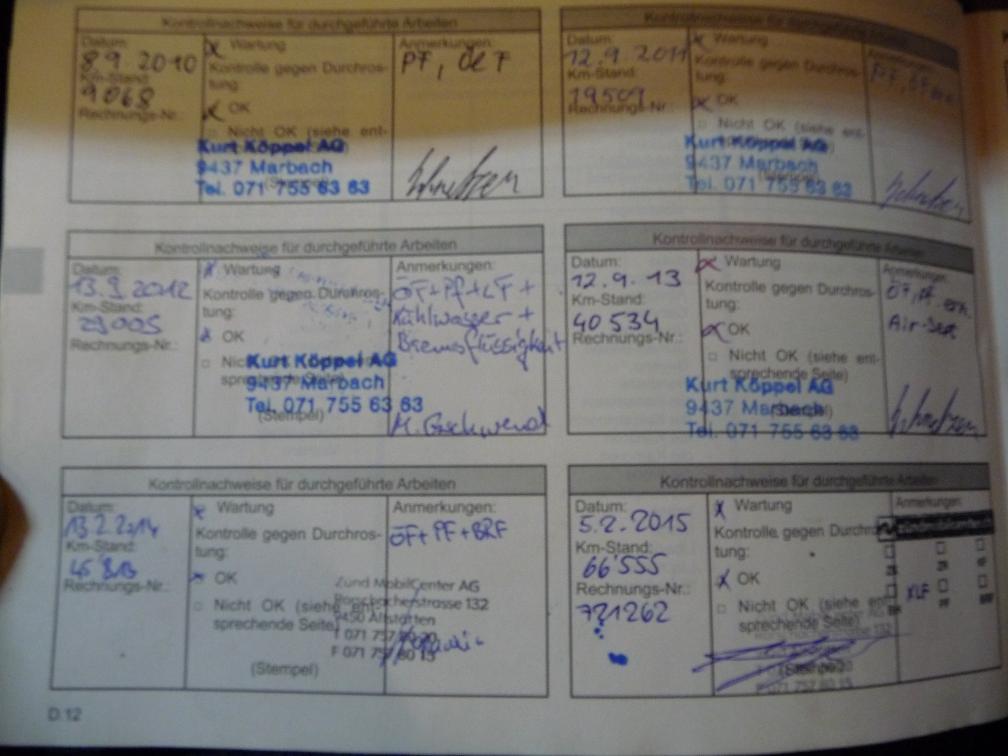 Kontrollnachweise für durchgeführte Arbeiten
Datum:
8.9.2010
Km-Stand:
9068
Rechnungs-Nr.:
x Wartung
Kontrolle gegen Durchros-
tung:
x OK
□ Nicht OK (siehe ent-
Kurt Köppel AG
9437 Marbach
Tel. 071 755 63 63
Anmerkungen:
PF, OeF
Kontrollnachweise für durchgeführte Arbeiten
Datum:
12.9.2011
Km-Stand:
19509
Rechnungs-Nr.:
x Wartung
Kontrolle gegen Durchros-
tung:
x OK
□ Nicht OK (siehe ent-
Kurt Köppel AG
9437 Marbach
Tel. 071 755 63 63
Anmerkungen:
Kontrollnachweise für durchgeführte Arbeiten
Datum:
13.9.2012
Km-Stand:
29005
Rechnungs-Nr.:
x Wartung
Kontrolle gegen Durchros-
tung:
x OK
□ Nicht OK (siehe ent-
sprechende Seite)
Kurt Köppel AG
9437 Marbach
Tel. 071 755 63 63
(Stempel)
Anmerkungen:
ÖF+PF+LF+
Kühlwasser +
Bremsflüssigkeit
M. Gschwend
Kontrollnachweise für durchgeführte Arbeiten
Datum:
12.9.13
Km-Stand:
40 534
Rechnungs-Nr.:
x Wartung
Kontrolle gegen Durchros-
tung:
x OK
□ Nicht OK (siehe ent-
sprechende Seite)
Kurt Köppel AG
9437 Marbach
Tel. 071 755 63 63
Anmerkungen:
ÖF, PF
Kontrollnachweise für durchgeführte Arbeiten
Datum:
13.2.2014
Km-Stand:
Rechnungs-Nr.:
x Wartung
Kontrolle gegen Durchros-
tung:
x OK
□ Nicht OK (siehe ent-
sprechende Seite)
(Stempel)
Anmerkungen:
ÖF+PF+BRF
Zünd MobilCenter AG
Rorschacherstrasse 132
9450 Altstätten
T 071 757 80 20
F 071 757 80 15
Kontrollnachweise für durchgeführte Arbeiten
Datum:
5.2.2015
Km-Stand:
66'555
Rechnungs-Nr.:
721262
x Wartung
Kontrolle gegen Durchros-
tung:
x OK
□ Nicht OK (siehe ent-
sprechende Seite)
(Stempel)
Anmerkungen:
XLF
D.12